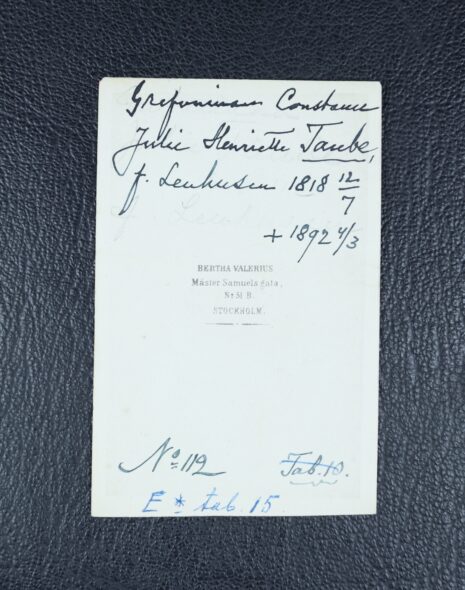 Grefvinnan Constance
Julie Henriette Taube,
f. Leuhusen 1818 12/7
+ 1892 4/3
BERTHA VALERIUS
Mäster Samuels gata,
No 51 B.
STOCKHOLM.
No 112 Tab. 10.
E * tab. 15